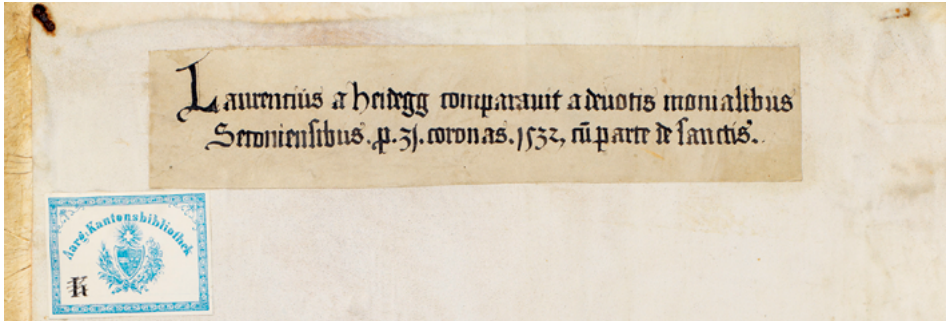 Laurentius a heidegg comparauit a deuotis monialibus
Setoniensibus. p. 31. coronas. 1532, cū parte de sanctis.
Aarg. Kantonsbibliothek
K